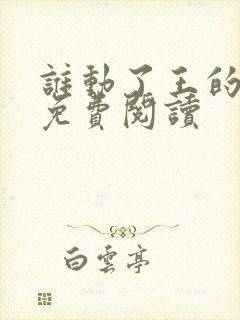 誰動了王的
免費閱讀
白雲亭